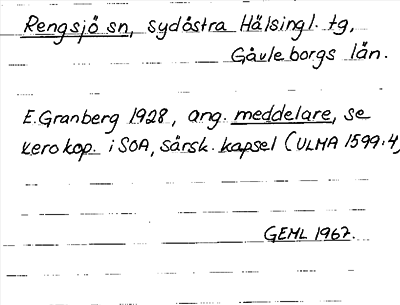 Rengsjö sn, sydöstra Hälsingl. tg,
Gävleborgs län.
E. Granberg 1928, ang. meddelare, se
xerokop. i SOA, särsk. kapsel (ULMA 1599:4)
GEHL 1967.